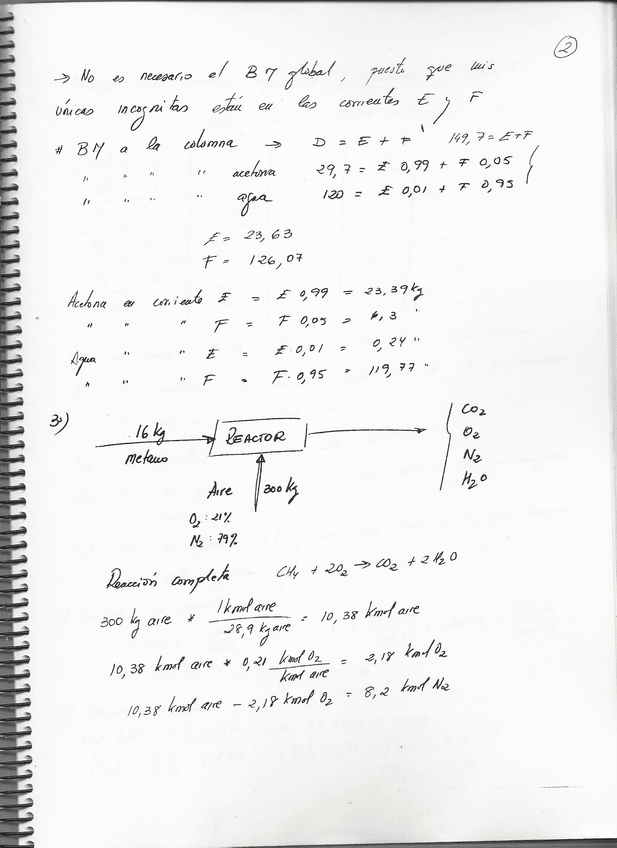 2
→ No es necesario el BM global, puesto que mis
únicas incognitas están en las corrientes E y F
# BM a la columna → D = E + F 149,7 = E+F
" " " " acetona 29,7 = E 0,99 + F 0,05
" " " " agua 120 = E 0,01 + F 0,95
E = 23,63
F = 126,07
Acetona en corriente E = E 0,99 = 23,39 kg
" " " F = F 0,05 = 6,3 "
Agua " " E = E 0,01 = 0,24 "
" " " F = F · 0,95 = 119,77 "
3:)
16 kg
metano
REACTOR
CO2
O2
N2
H2O
Aire 300 kg
O2 : 21%
N2 : 79%
Reacción completa CH4 + 2O2 → CO2 + 2H2O
300 kg aire * 1 kmol aire / 28,9 kg aire = 10,38 kmol aire
10,38 kmol aire * 0,21 kmol O2 / kmol aire = 2,18 kmol O2
10,38 kmol aire - 2,18 kmol O2 = 8,2 kmol N2